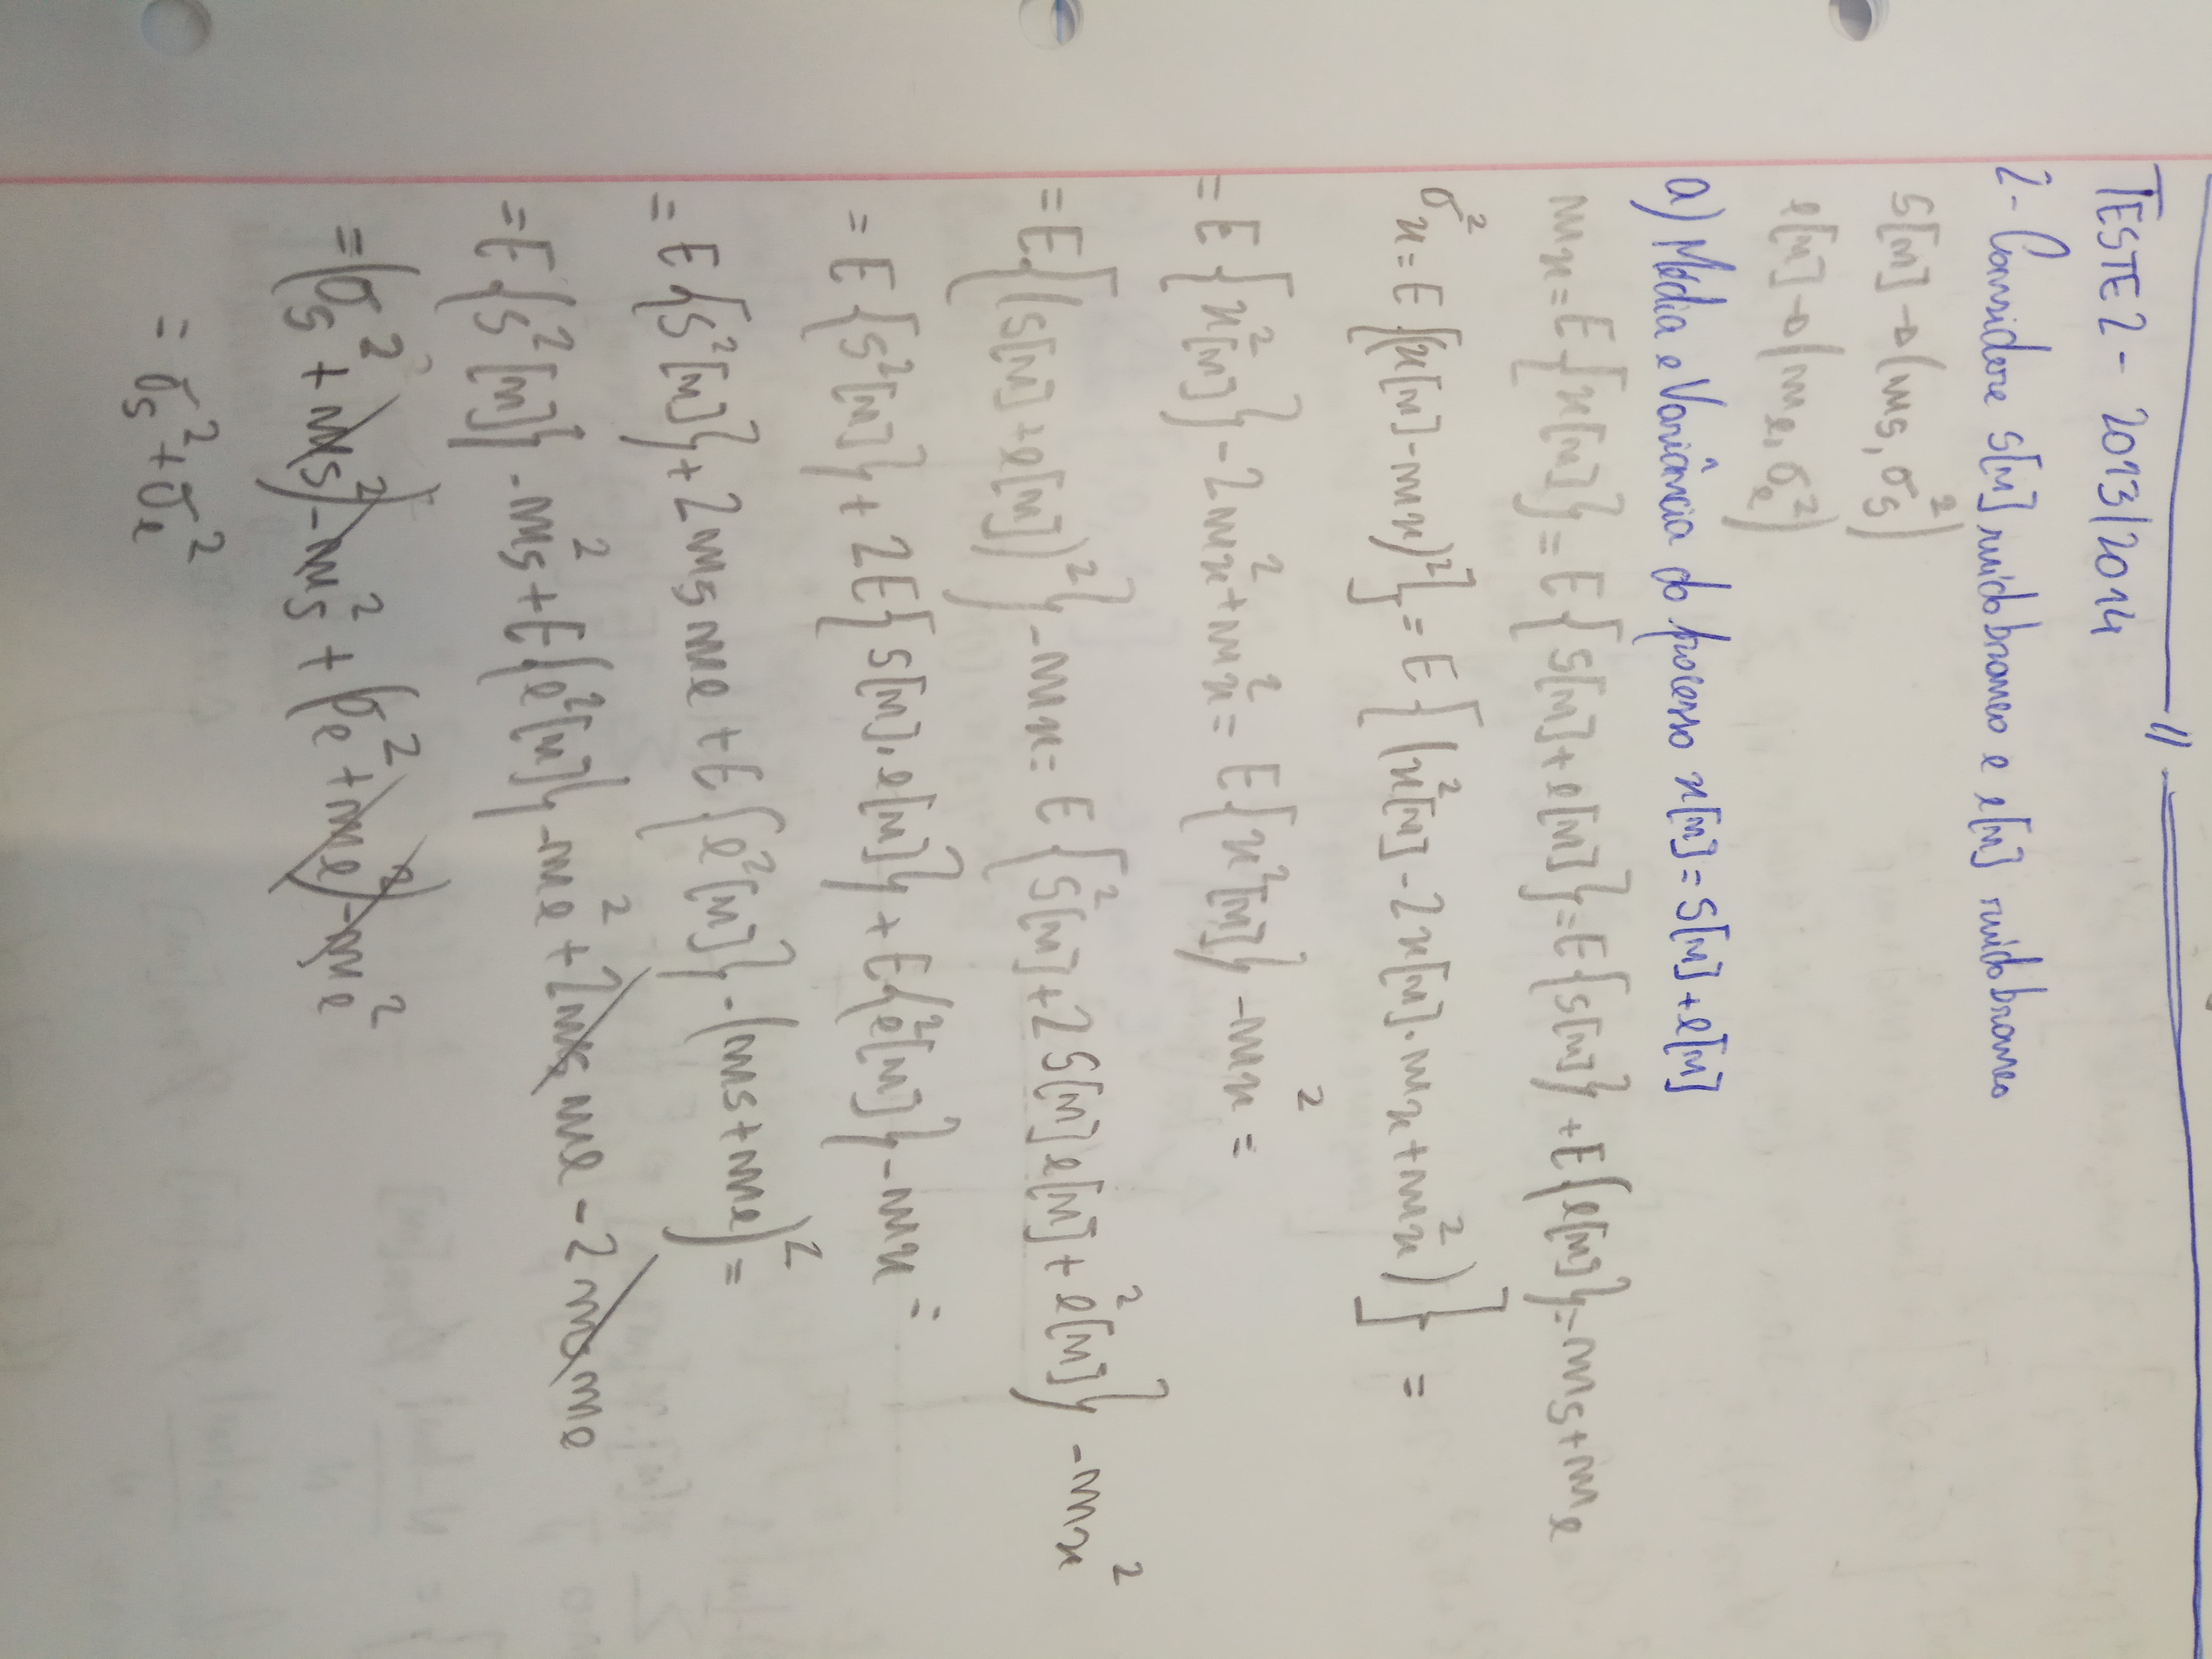 TESTE 2 - 2013/2014
2- Considere s[n] ruido branco e e[n] ruido branco
s[n] → (ms, σs²)
e[n] → (me, σe²)
a) Média e Variância do processo x[n] = s[n] + e[n]
mx = E{x[n]} = E{s[n] + e[n]} = E{s[n]} + E{e[n]} = ms + me
σ²x = E{(x[n] - mx)²} = E{(x²[n] - 2x[n] . mx + mx²)} =
= E{x²[n]} - 2mx² + mx² = E{x²[n]} - mx² =
= E{(s[n] + e[n])²} - mx = E{s²[n] + 2 s[n] e[n] + e²[n]} - mx²
= E{s²[n]} + 2E{s[n] . e[n]} + E{e²[n]} - mx =
= E{s²[n]} + 2 ms me + E{e²[n]} - (ms + me)² =
= E{s²[n]} - ms² + E{e²[n]} - me² + 2 ms me - 2 ms me
= (σs² + ms²) - ms² + (σe² + me²) - me²
= σs² + σe²